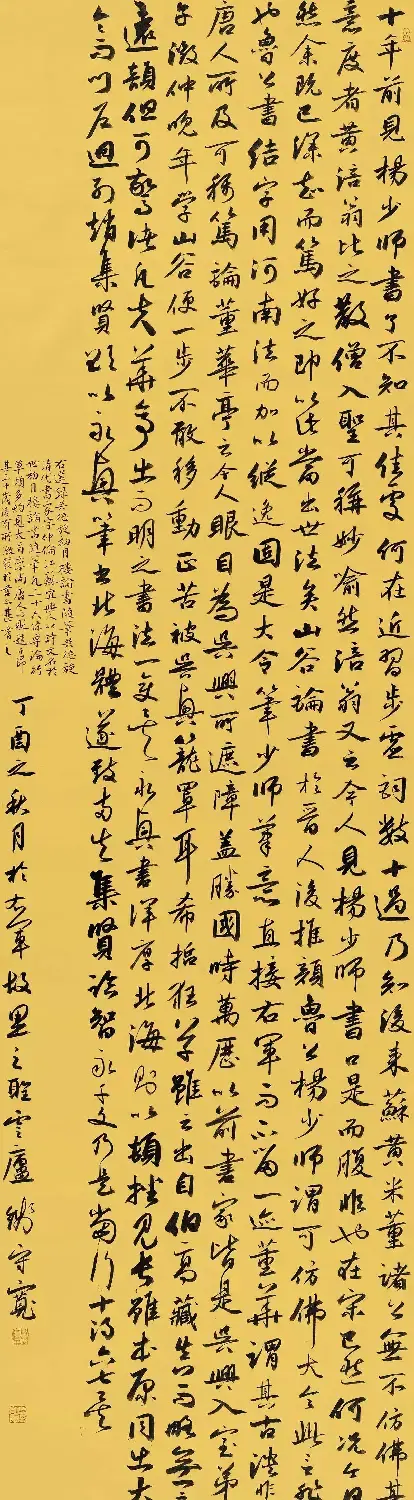 十年前見楊少師書了不知其佳處何在近習步虛詞數十過乃知後来蘇黃米董諸公無不仿佛其
意度者黃涪翁比之散僧入聖可稱妙喻然涪翁又云今人見楊少師書口是而腹非也在宋已然何況今日
然余既已深知而篤好之即以此當出世法矣山谷論書於晉人後推顏魯公楊少師謂可仿佛大令此言非
也魯公書結字用河南法而加以縱逸固是大令筆少師筆意直接右軍而不留一迹董華謂其古淡非
唐人所及可稱篤論董華亭云今人眼目為吳興所遮障蓋勝國時萬歷以前書家皆是吳興入室弟
子徵仲晚年學山谷便一步不敢移動正苦被吳興籠罩耳希哲狂草雖云出自伯高藏真而略無一
遠韻但可驚諸凡夫華亭出而明之書法一變矣永興書渾厚北海則以頓挫見長雖本原同出大
令而門户迥別趙集賢欲以永興筆書北海體遂致兩失集賢臨智永千文乃是當行十得六七矣
丁酉之秋月於右軍故里之聽雲廬守寬